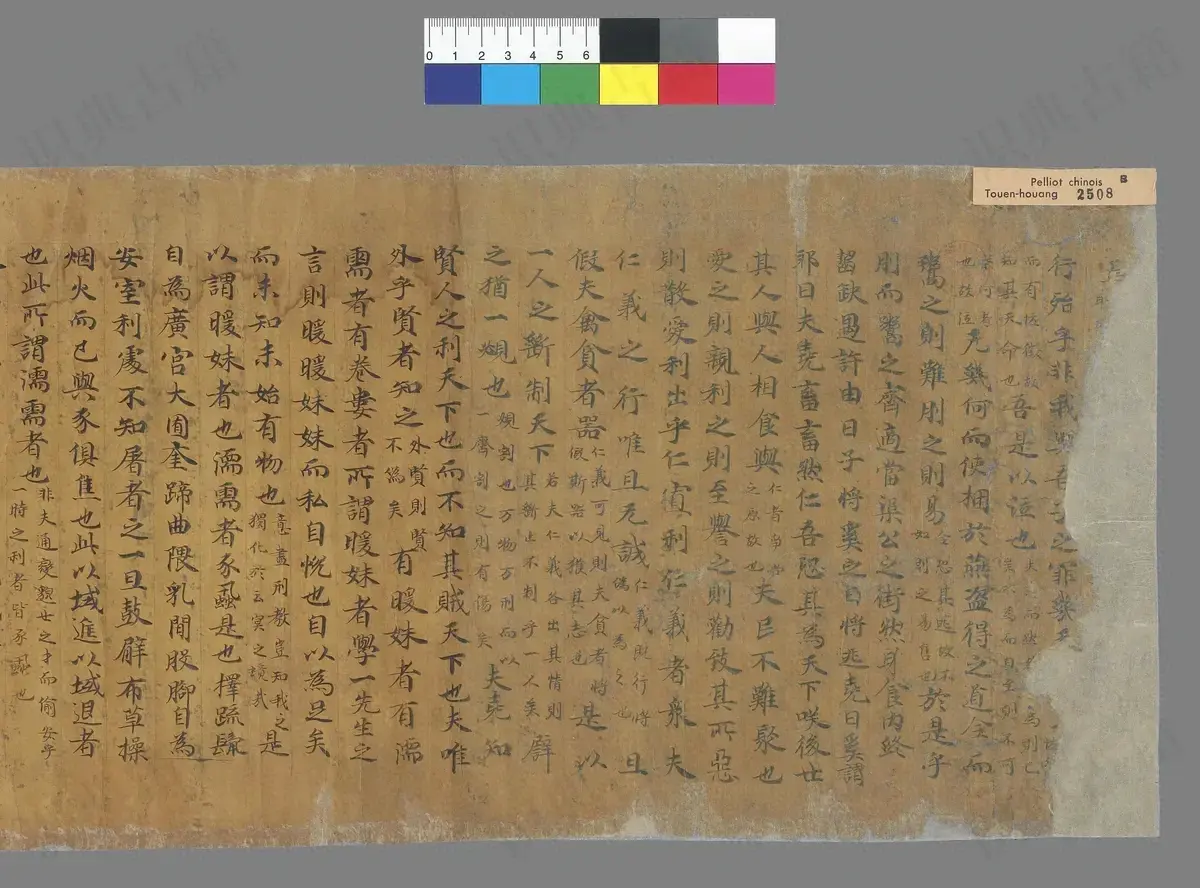 Pelliot chinois
Touen-houang 2508
行殆乎非我與吾子之罪
而有怪徵故知其天命也吾是以泣也
无幾何而使梱於燕盜得之道全而
鬻之則難刖之則易全恐其逃故不如刖之易售也於是乎
刖而鬻之齊適當渠公之街然身食肉終
齧缺遇許由曰子將奚之曰將逃堯曰奚謂
耶曰夫堯畜畜然仁吾恐其為天下咲後世
其人與人相食與仁者爭尚之原故也夫民不難聚也
愛之則親利之則至譽之則勸致其所惡
則散愛利出乎仁義利仁義者衆夫
仁義之行唯且无誠仁義既行將偽以為之也且
假夫禽貪者器仁義可見則夫貪者將假斯器以獲其志也是以
一人之斷制天下若夫仁義各出其情則其斷止不制乎一人矣譬
之猶一覕也覕割也万物万形而以一齊割之則有傷矣夫堯知
賢人之利天下也而不知其賊天下也夫唯
外乎賢者知之外賢則賢不為矣有暖妹者有濡
需者有卷婁者所謂暖妹者學一先生之
言則暖暖妹妹而私自悅也自以為足矣
而未知未始有物也意盡形教豈知我之獨化於玄冥之境哉是
以謂暖妹者也濡需者豕虱是也擇疏鬣
自為廣宮大囿奎蹄曲隈乳間股腳自為
安室利處不知屠者之一旦鼓臂布草操
烟火而已與豕俱焦也此以域進以域退者
也此所謂濡需者也非夫通變邈世之才而偷安乎一時之利者皆豕虱也
0 1 2 3 4 5 6
识典古籍